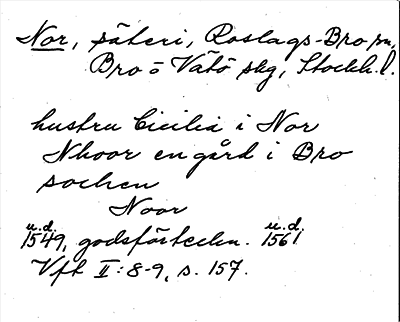 Nor, säteri, Roslags-Bro sn,
Bro o Vätö skg, Stockh. l.
hustru Cicilia i Nor
Nhoor en gård i Bro
sochen
Noor
u.d. u.d.
1549, godsförteckn. 1561
Vft II: 8-9, s. 157.